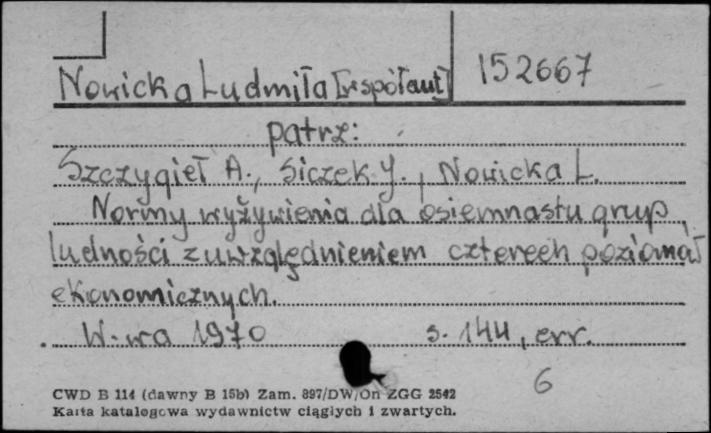 Nowicka Ludmiła [współaut] 152667
patrz:
Szczygieł A., Siczek J., Nowicka L.
Normy wyżywienia dla osiemnastu grup
ludności z uwzględnieniem czterech poziomów
ekonomicznych.
W-wa 1970 s. 144, err.
6
CWD B 114 (dawny B 15b) Zam. 897/DW/On ZGG 2542
Karta katalogowa wydawnictw ciągłych i zwartych.